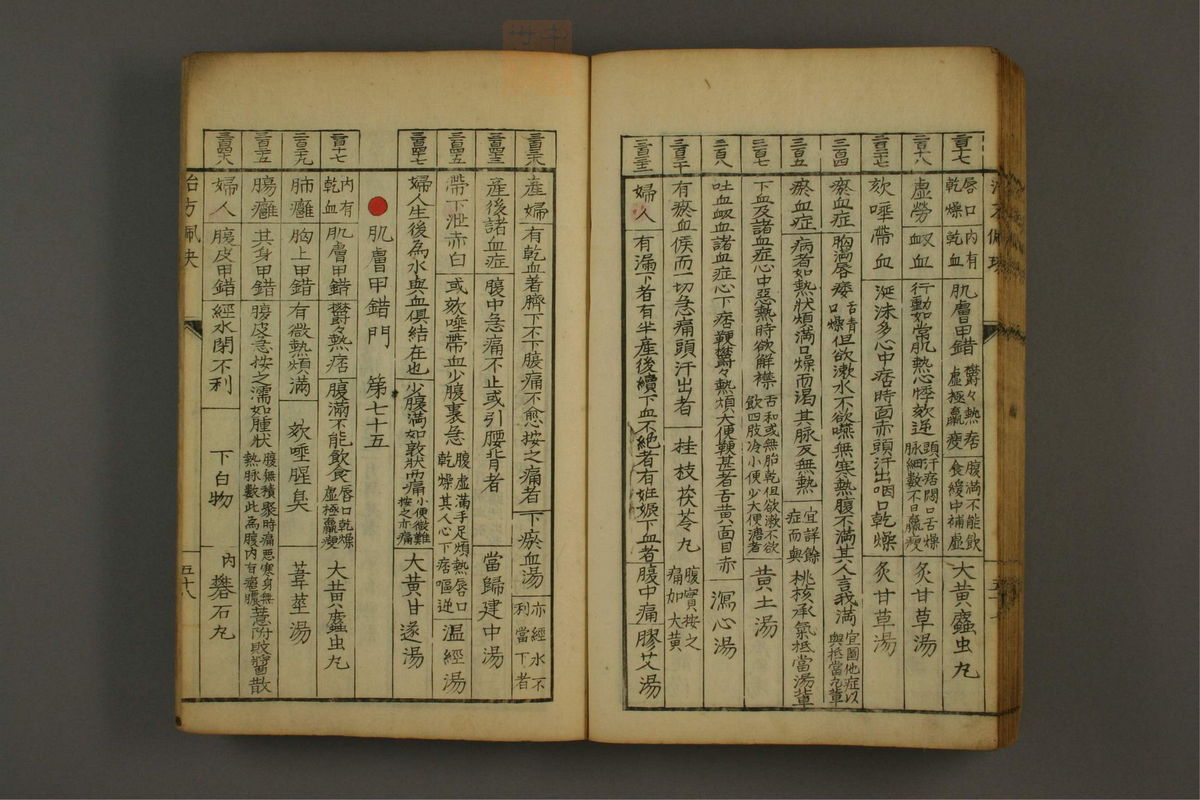 二百十七 唇口內有乾燥乾血 肌膚甲錯 鬱々熱痞虛極羸瘦 腹滿不能飲食緩中補虛 大黃䗪虫丸
二百十八 虛勞衂血 行動如常肌熱心悸欬逆 頭汗痞悶口舌燥脉細數不日羸瘦 炙甘草湯
欬唾帶血 涎沫多心中痞時面赤頭汗出咽口乾燥 炙甘草湯
三百四 瘀血症 胸滿唇痿 舌青口燥 但欲漱水不欲嚥無寒熱腹不滿其人言我滿 宜圖他症以與抵當丸輩
三百五 瘀血症 病者如熱狀煩滿口燥而渴其脉反無熱 宜詳餘症而與 桃核承氣抵當湯輩
三百七 下血及諸血症心中惡熱時欲解襟 舌和或無胎乾但欲漱不欲飲四肢冷小便少大便溏者 黃土湯
三百八 吐血衂血諸血症心下痞鞕鬱々熱煩大便鞕甚者舌黃面目赤 瀉心湯
有瘀血侯而一切急痛頭汗出者 桂枝茯苓丸 腹實按之痛加大黃
婦人 有漏下者有半產後續下血不絕者有妊娠下血者腹中痛 膠艾湯
產婦 有乾血着臍下不下腹痛不愈按之痛者 下瘀血湯 亦經水不利當下者
產後諸血症 腹中急痛不止或引腰背者 當歸建中湯
帶下泄赤白 或欬唾帶血少腹裏急 腹虛滿手足煩熱唇口乾燥其人心下痞嘔逆 溫經湯
婦人生後為水與血俱結在也 少腹滿如敦狀而痛 小便微難按之亦痛 大黃甘遂湯
肌膚甲錯門 第七十五
二百十七 內有乾血 肌膚甲錯 鬱々熱痞 腹滿不能飲食 唇口乾燥虛極羸瘦 大黃䗪虫丸
肺癰 胸上甲錯 有微熱煩滿 欬唾腥臭 葦莖湯
腸癰 其身甲錯 腹皮急按之濡如腫狀 腹無積聚時痛惡寒身無熱脉數此為腹內有癰膿 薏附敗醬散
婦人 腹皮甲錯 經水閉不利 下白物 內礬石丸
治方
五十八